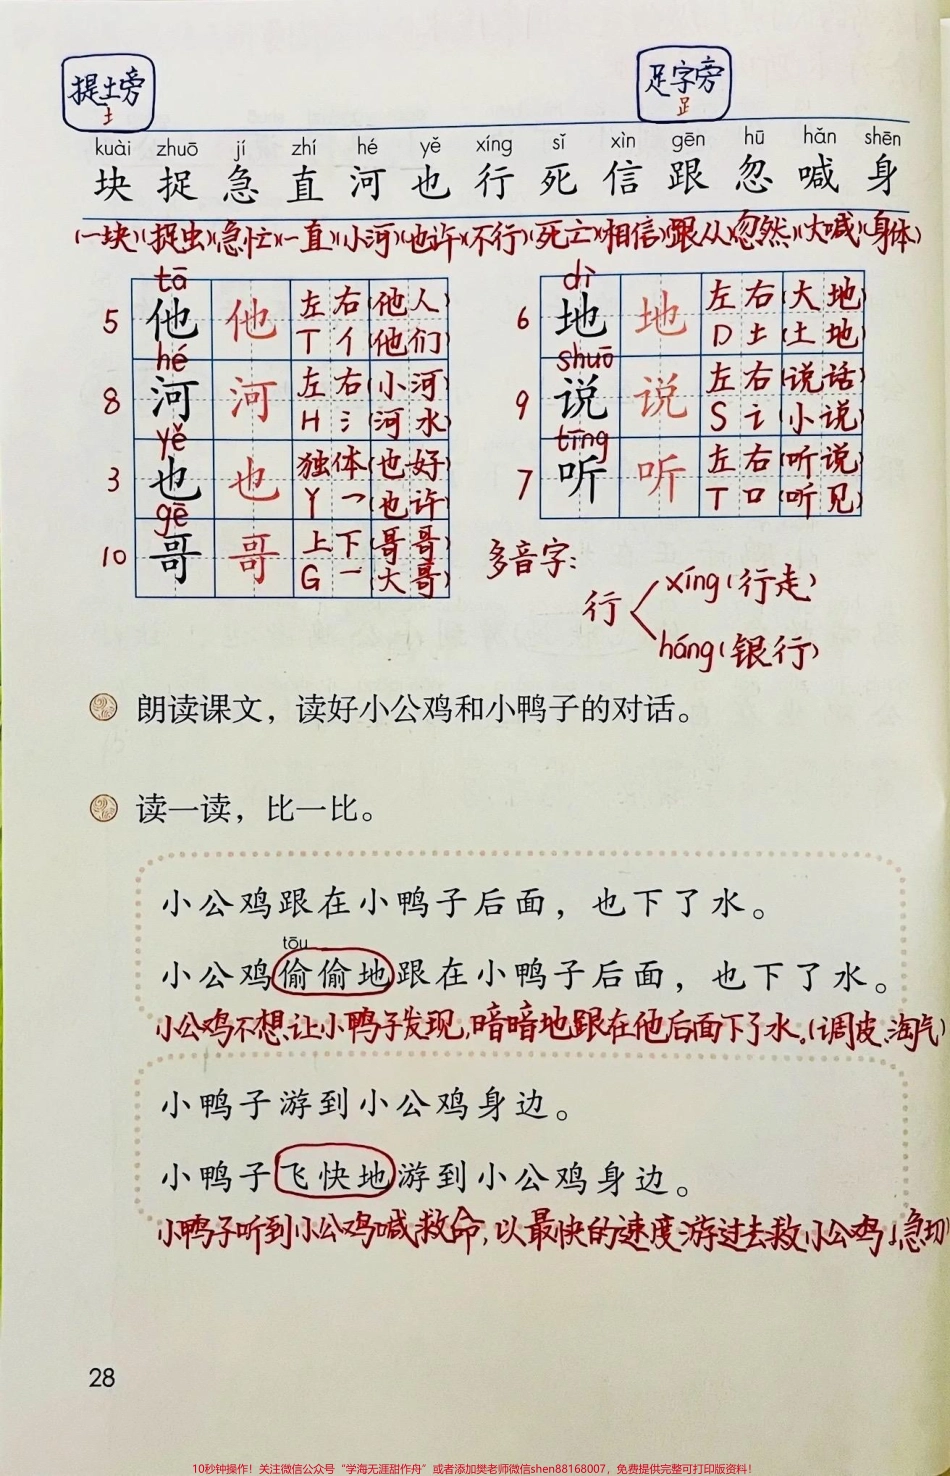 提土旁 足字旁
土 𧾷
kuài zhuō jí zhí hé yě xíng sǐ xìn gēn hū hǎn shēn
块 捉 急 直 河 也 行 死 信 跟 忽 喊 身
(一块)(捉虫)(急忙)(一直)(小河)(也许)(不行)(死亡)(相信)(跟从)(忽然)(大喊)(身体)
tā
5 他 他 左右 (他人)
T 亻 (他们)
hé
8 河 河 左右 (小河)
H 氵 (河水)
yě
3 也 也 独体 (也好)
Y 乛 (也许)
gē
10 哥 哥 上下 (哥哥)
G 一 (大哥)
dì
6 地 地 左右 (大地)
D 土 (土地)
shuō
9 说 说 左右 (说话)
S 讠 (小说)
tīng
7 听 听 左右 (听说)
T 口 (听见)
多音字:
行 xíng(行走)
háng(银行)
朗读课文，读好小公鸡和小鸭子的对话。
读一读，比一比。
小公鸡跟在小鸭子后面，也下了水。
tōu
小公鸡偷偷地跟在小鸭子后面，也下了水。
小公鸡不想让小鸭子发现,暗暗地跟在他后面下了水。(调皮、淘气)
小鸭子游到小公鸡身边。
小鸭子飞快地游到小公鸡身边。
小鸭子听到小公鸡喊救命,以最快的速度游过去救小公鸡。(急切)
28
10秒钟操作！关注微信公众号“学海无涯甜作舟”或者添加樊老师微信shen88168007，免费提供完整可打印版资料！